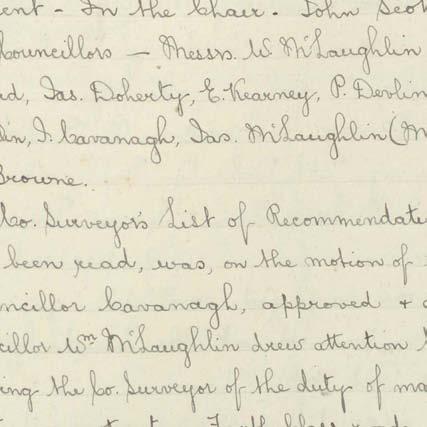 ent - In the Chair. John Scot
Councillors - Messrs. W. McLaughlin
d, Jas. Doherty, E. Kearney, P. Devlin
lin, F. Cavanagh, Jas. McLaughlin (M
Browne.
Co. Surveyor's List of Recommendatio
been read, was, on the motion of
ncillor Cavanagh, approved + a
cillor Wm McLaughlin drew attention
ing the Co. Surveyor of the duty of ma